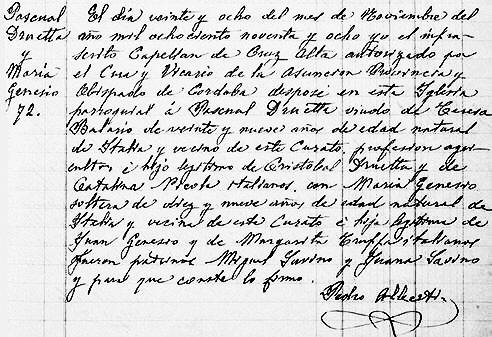 Pascual
Druetta
y
María
Genesio
72.
El día veinte y ocho del mes de Noviembre del
año mil ochociento noventa y ocho yo el infra-
scrito Capellan de Cruz Alta autorizado por
el Cura y Vicario de la Asuncion Provincia y
Obispado de Cordoba despozé en esta Iglesia
parroquial á Pascual Druetta viudo de Teresa
de veinte y nueve años de edad natural
de Italia y vecino de este Curato, profession agri-
cultor, é hijo legitimo de Cristobal Druetta y de
Catalina Nicola italianos, con Maria Genesio
soltera de diez y nueve años de edad natural de
Italia y vecina de este Curato é hija legitima de
Juan Genesio y de Margarita Truffa italianos
fueron padrinos Miguel Savino y Juana Savino
y para que conste lo firmo.
Pedro Alberti.